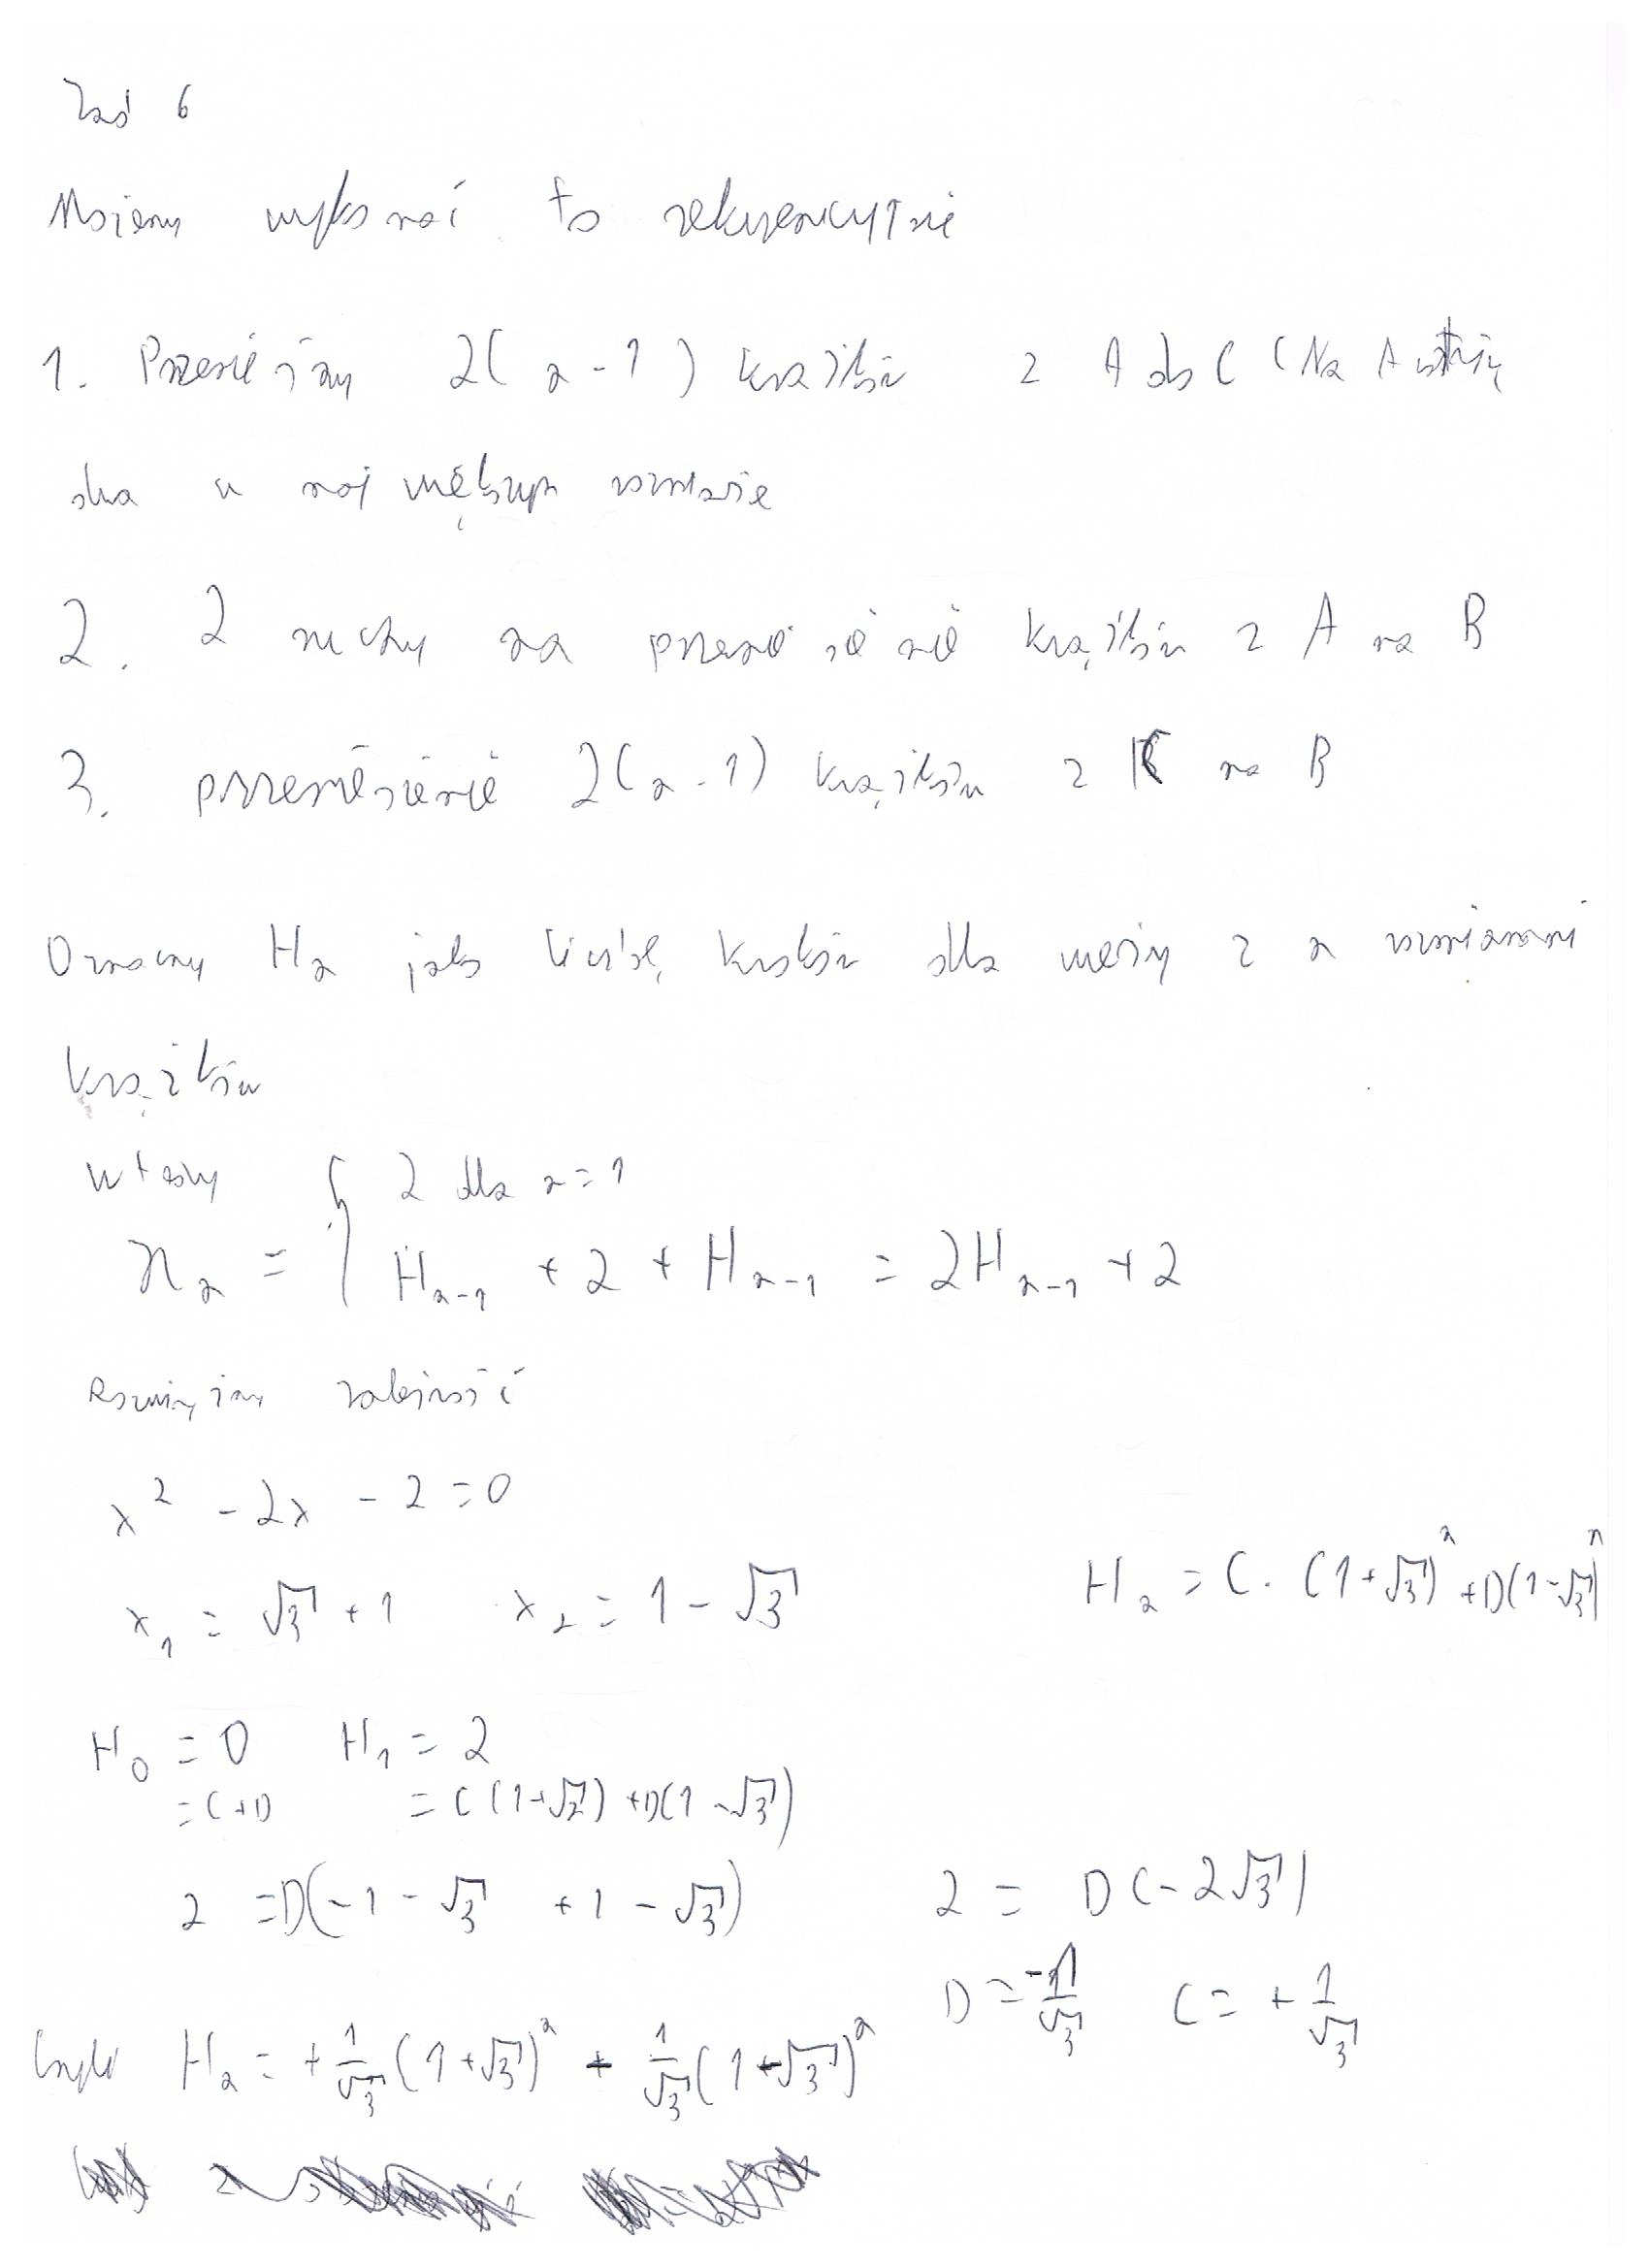 Zad 6
Możemy wykonać to rekurencyjnie
1. Przenieśmy 2(n-1) krążków z A do C (Na A
dwa o największym rozmiarze
2. 2 ruchy na przeniesienie krążków z A na B
3. przeniesienie 2(n-1) krążków z C na B
Oznaczmy Hn jako liczbę kroków dla wieży z n rozmiarami
krążków
Wtedy { 2 dla n=1
Hn = { Hn-1 + 2 + Hn-1 = 2Hn-1 + 2
Rozwiążmy zależność
x² - 2x - 2 = 0
x₁ = √3 + 1 x₂ = 1 - √3 Hn = C·(1+√3)ⁿ + D(1-√3)ⁿ
H₀ = 0 H₁ = 2
= C+D = C(1+√3) + D(1-√3)
2 = D(-1-√3 + 1-√3) 2 = D(-2√3)
D = -1/√3 C = +1/√3
czyli Hn = +1/√3 (1+√3)ⁿ - 1/√3 (1-√3)ⁿ